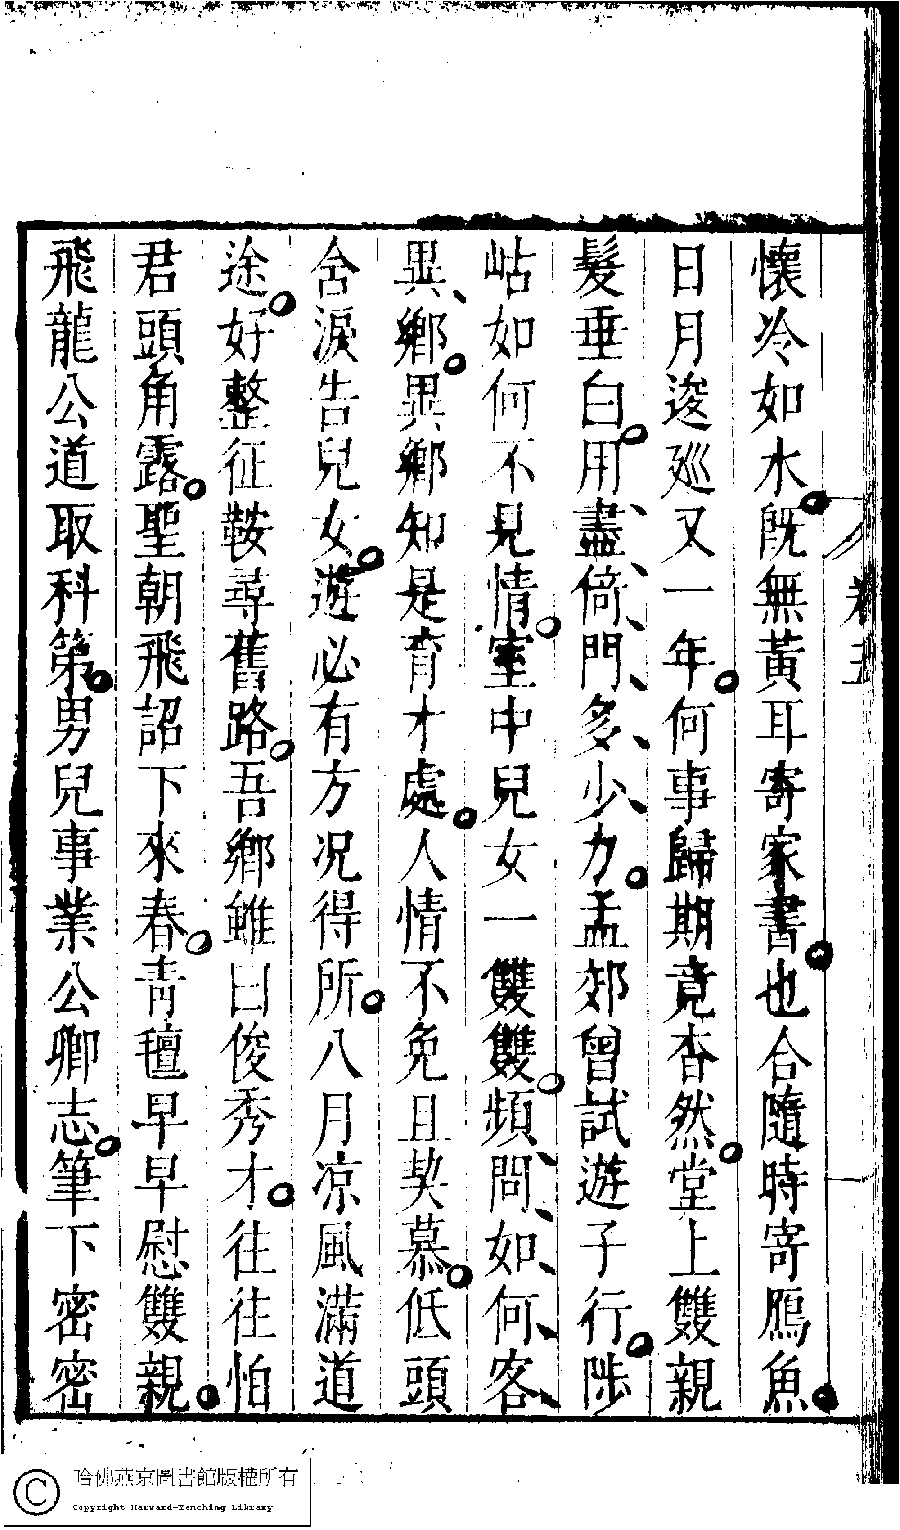 懷冷如水既無黃耳寄家書也合隨時寄鴈魚
日月逡廵又一年何事歸期竟杳然堂上雙親
髮垂白用盡倚門多少力孟郊曾試遊子行陟
岵如何不見情室中兒女一雙雙頻問如何客
異鄉異鄉知是育才處人情不免且契慕低頭
含淚告兒女遊必有方况得所八月凉風滿道
途好整征鞍尋舊路吾鄉雖曰俊秀才往往怕
君頭角露聖朝飛詔下來春青氊早早慰雙親
飛龍公道取科第男兒事業公卿志筆下密密
卷五
哈佛燕京圖書館版權所有
Copyright Harvard-Yenching Library